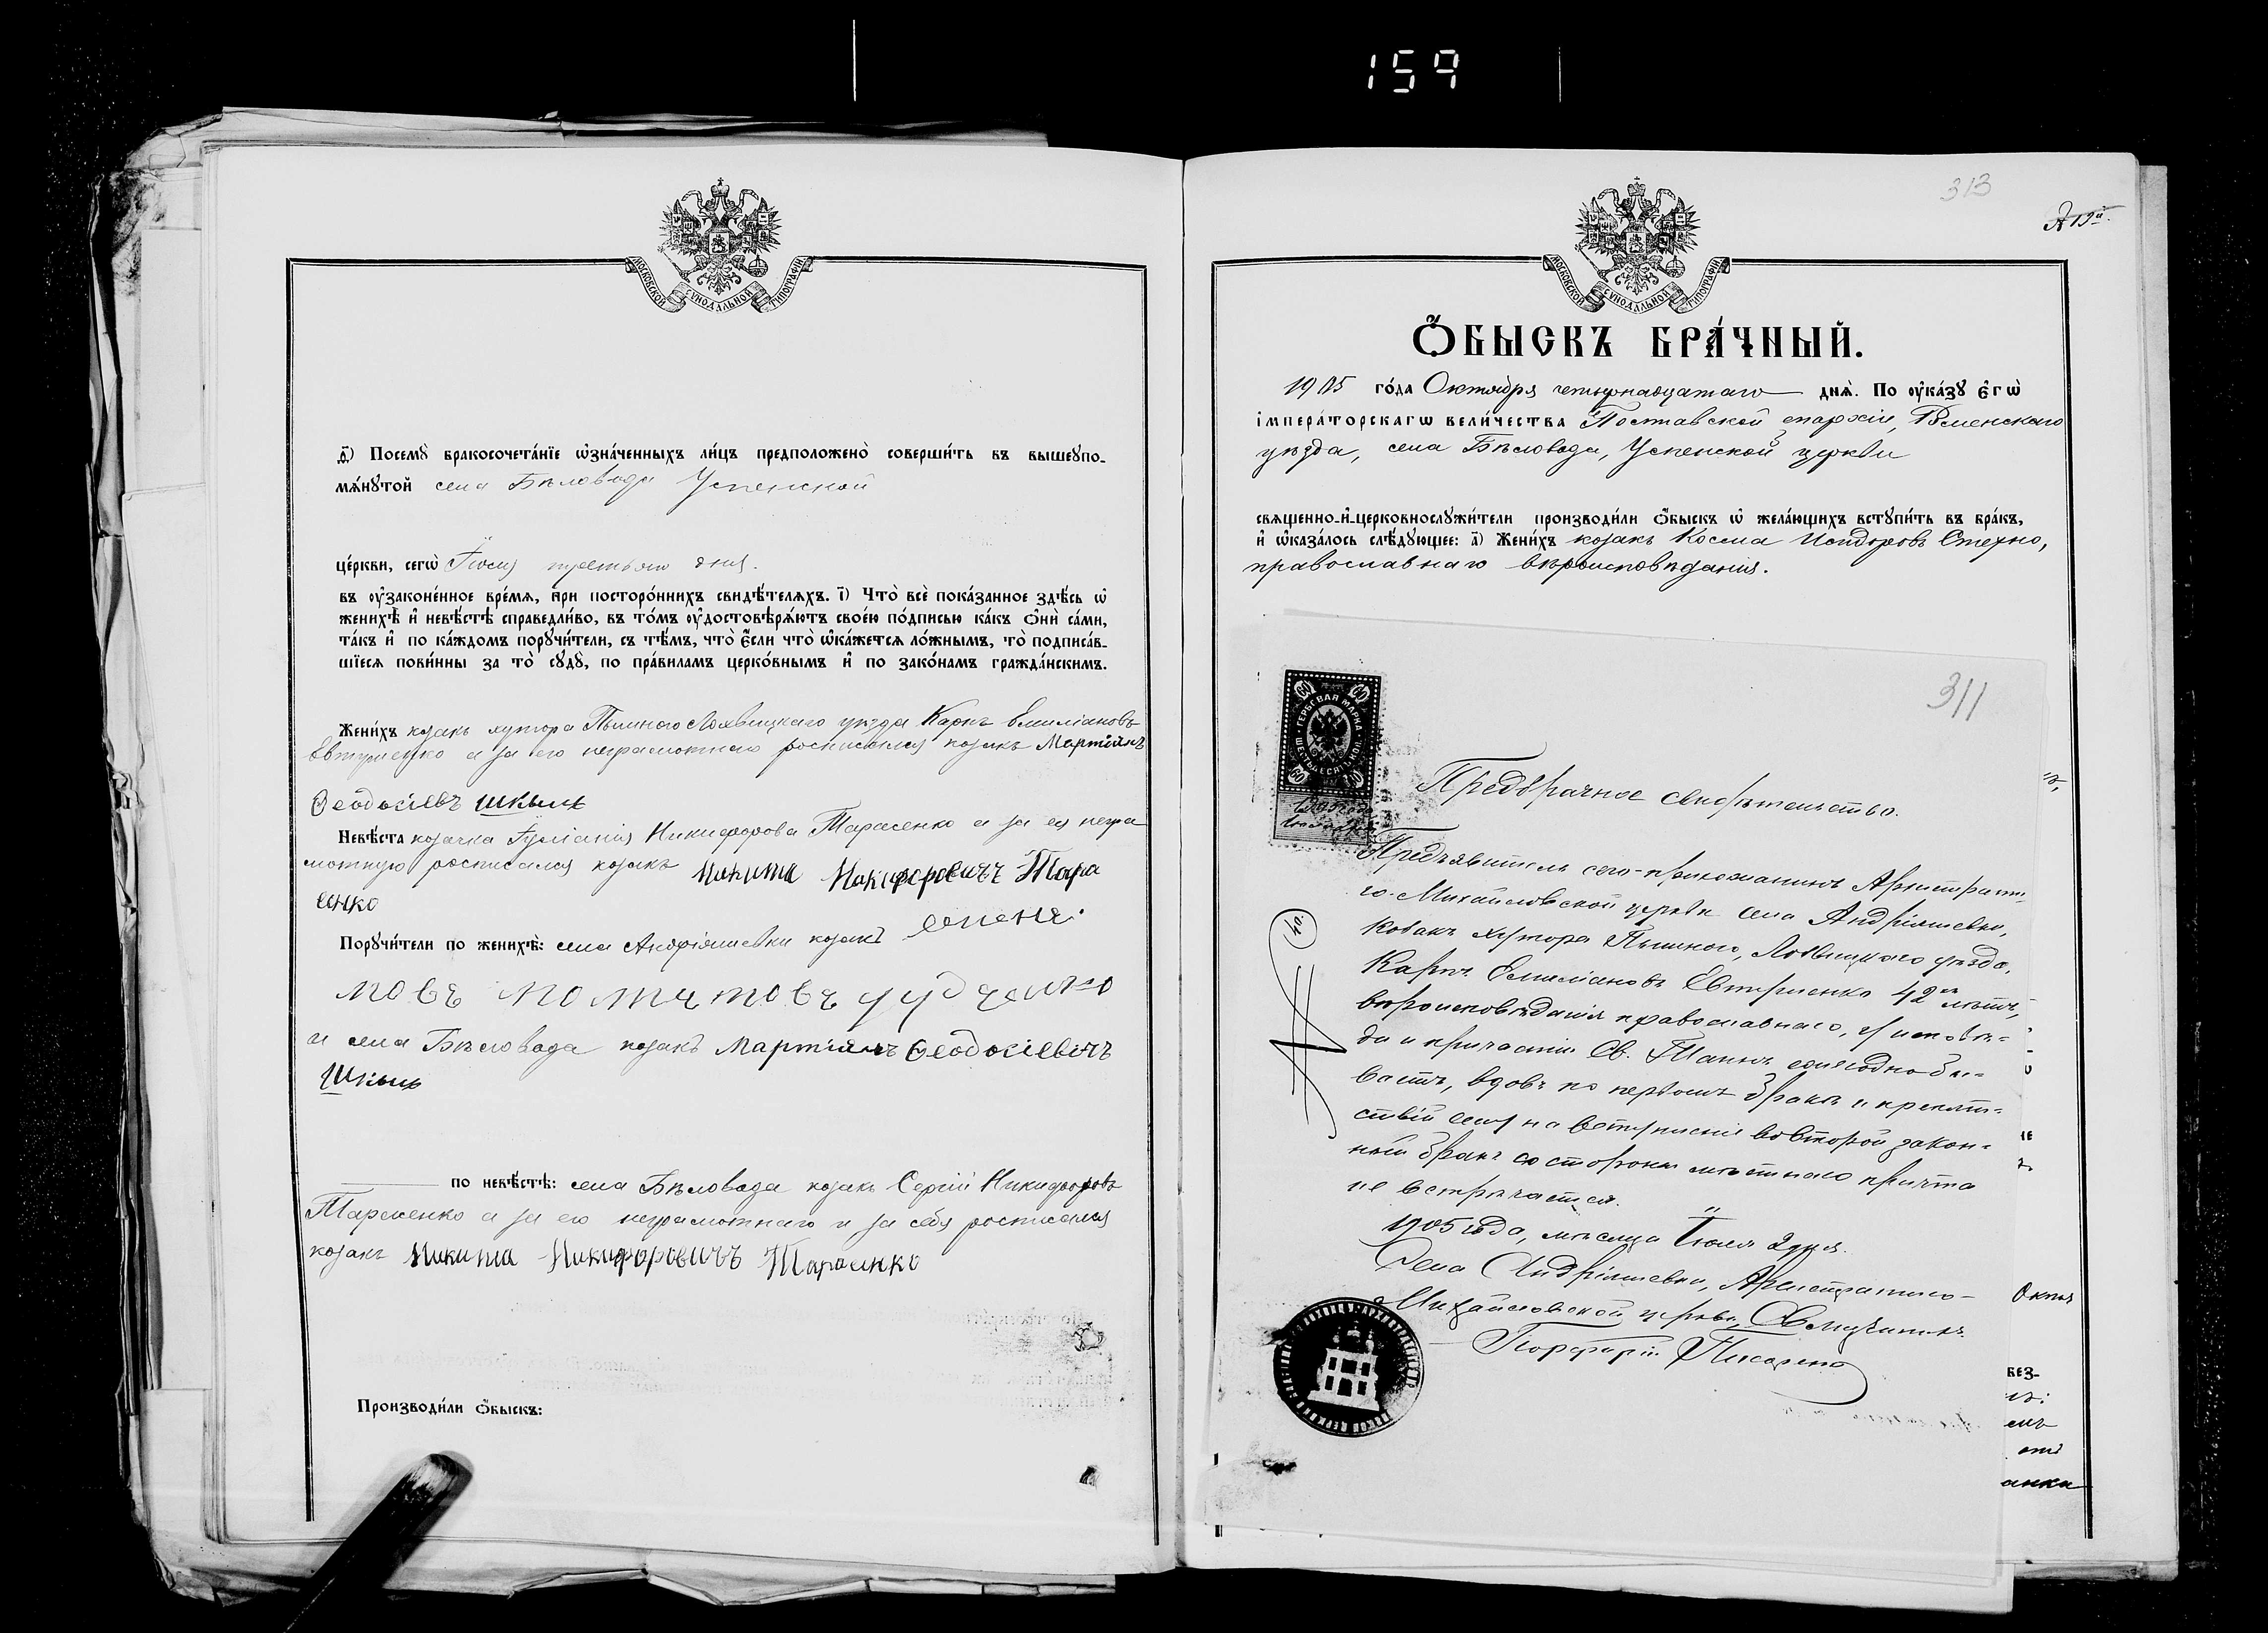 159
МОСКОВСКОЙ СУНОДАЛЬНОЙ ТИПОГРАФІИ
д҃) Посемꙋ̀ бракосочета́нїе ѡ҆зна́ченныхъ ли́цъ предположено̀ соверши́ть въ вышеꙋпо-
мѧ́нꙋтой села Бѣловода Успенской
це́ркви, сегѡ̀ Іюля третьяго дня.
въ ᲂу҆законе́нное вре́мѧ, при посторо́ннихъ свидѣ́телѧхъ. і҃) Что̀ всѐ пока́занное здѣ́сь ѡ҆
женихѣ̀ и҆ невѣ́стѣ справедли́во, въ то́мъ ᲂу҆достовѣрѧ́ютъ свое́ю по́дписью ка́къ ѻ҆нѝ са́ми,
та́къ и҆ по ка́ждомъ порꙋчи́тели, съ тѣ́мъ, что̀ є҆́сли что̀ ѡ҆ка́жетсѧ ло́жнымъ, то̀ подписа́в-
шїесѧ пови́нны за то̀ сꙋдꙋ̀, по пра́виламъ церко́внымъ и҆ по зако́намъ гражда́нскимъ.
Жени́хъ козакъ хутора Пышного Лохвицкаго уѣзда Карпъ Емиліановъ
Евтушенко а за его неграмотнаго росписался козакъ Мартіянъ
Ѳеодосіевъ Шкыль
Невѣ́ста козачка Іуліанія Никифорова Тарасенко а за ея негра
мотную росписался козакъ Никита Никифоровичъ Тара
сенко
Порꙋчи́тели по женихѣ̀: села Андріяшевки козакъ
и села Бѣловода козакъ Мартіянъ Ѳеодосіевичъ
Шкыль
по невѣ́стѣ: села Бѣловода козакъ Сергій Никифоровъ
Тарасенко а за его неграмотнаго и за себя росписался
козакъ Никита Никифоровичъ Тарасенко
Производи́ли ѻ҆́быскъ:
313
МОСКОВСКОЙ СУНОДАЛЬНОЙ ТИПОГРАФІИ
Ѻ҆́БЫСКЪ БРА́ЧНЫЙ.
1905 го́да Октября четырнадцатаго днѧ̀. По ᲂу҆ка́зꙋ є҆гѡ̀
і҆мпера́торскагѡ вели́чества Полтавской епархіи, Роменскаго
уѣзда, села Бѣловода, Успенской церкви
свѧщенно-и҆-церковнослꙋжи́тели производи́ли ѻ҆́быскъ ѡ҆ жела́ющихъ встꙋпи́ть въ бра́къ,
и҆ ѡ҆каза́лось слѣ́дꙋющее: а҃) Жени́хъ козакъ Косма Исидоровъ Стехно,
православнаго вѣроисповѣданія.
311
60 60
ГЕРБОВАЯ МАРКА
ШЕСТЬДЕСЯТЪ КОП.
60 60
Предбрачное свидѣтельство.
Предъявитель сего - прихожанинъ Архистрати-
го-Михайловской церкви села Андріяшевки,
Козакъ хутора Пышного, Лохвицкаго уѣзда,
Карпъ Емиліановъ Евтушенко 42хъ лѣтъ,
вѣроисповѣданія православнаго, у исповѣ-
ди и причастія Св. Таинъ ежегодно бы-
ваетъ, вдовъ по первомъ бракѣ и препят-
ствій ему на вступленіе во второй закон-
ный бракъ со стороны мѣстнаго причта
не встрѣчается.
1905 года, мѣсяца Іюля 2 дня.
Села Андріяшевки, Архистратиго-
Михайловской церкви, Священникъ
Порфирій Писаренко
Октя
вез-
емъ
анки